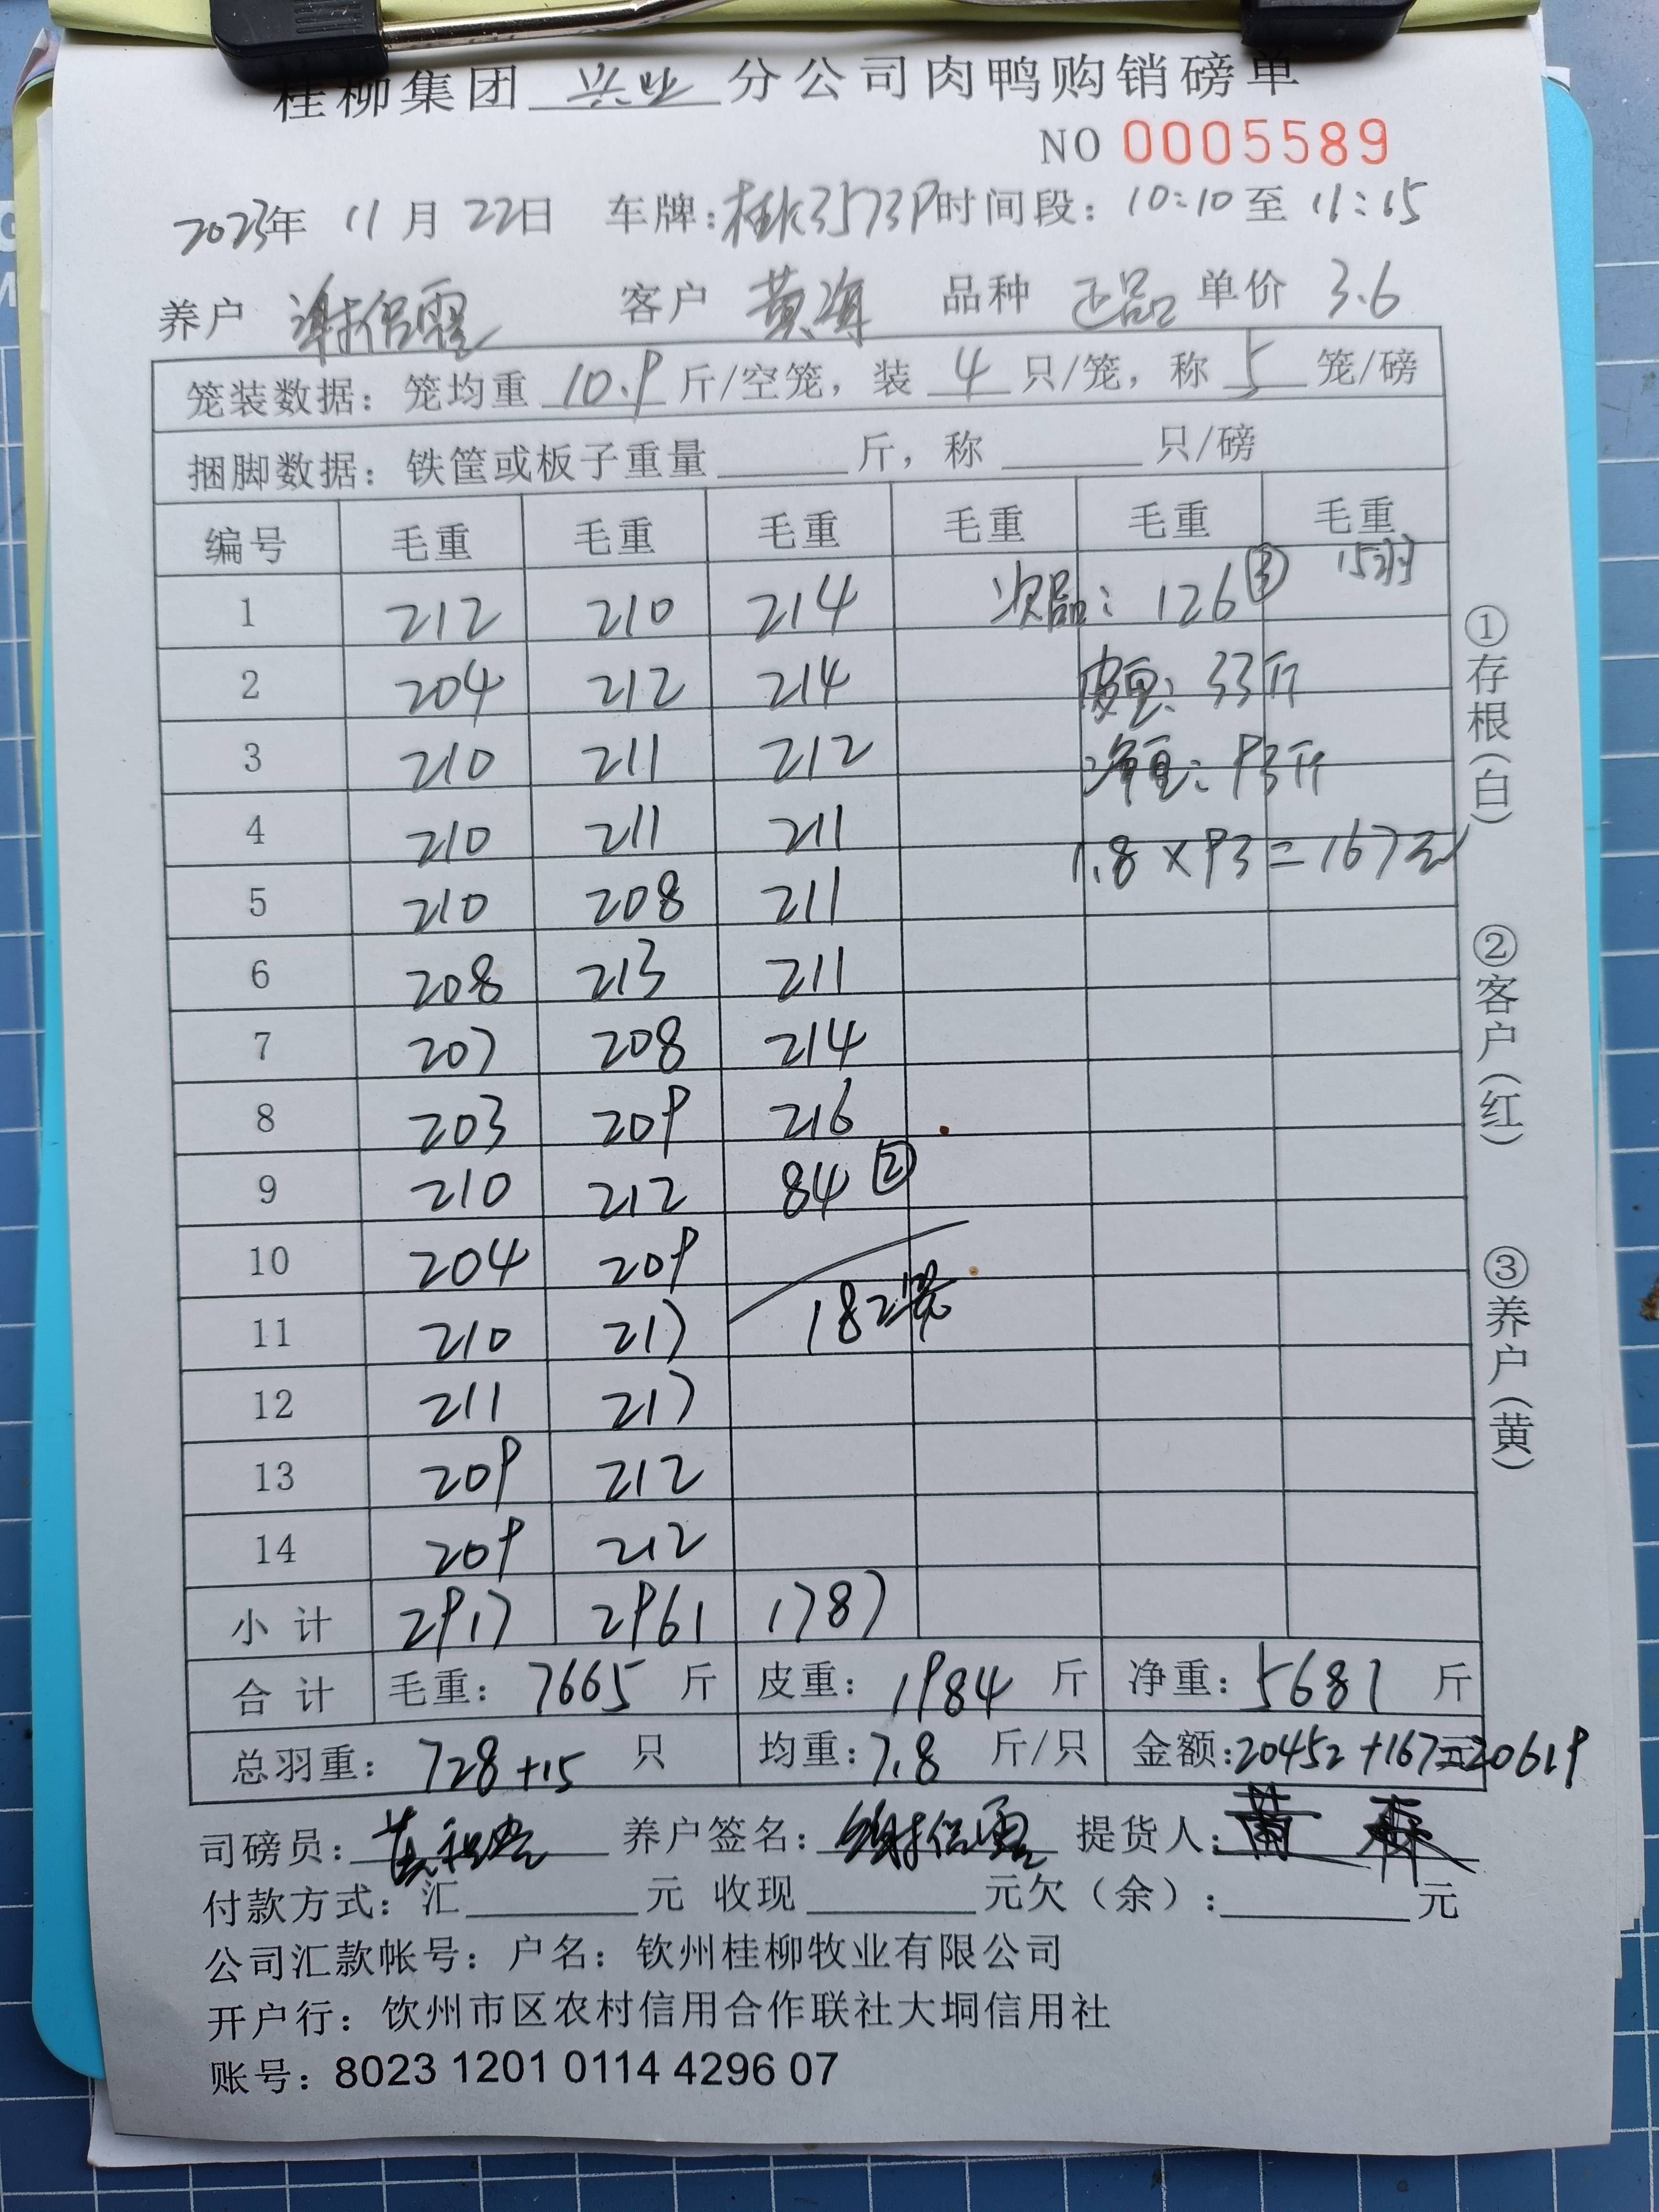 桂柳集团 兴业 分公司肉鸭购销磅单
NO 0005589
2023年 11月 22日 车牌:桂K3573P 时间段: 10:10 至 11:15
养户 谢侶霞 客户 黄海 品种 正品 单价 3.6
笼装数据: 笼均重 10.9 斤/空笼, 装 4 只/笼, 称 5 笼/磅
捆脚数据: 铁筐或板子重量 斤, 称 只/磅
编号 毛重 毛重 毛重 毛重 毛重 毛重
1 212 210 214 次品: 126 ③ 15羽
2 204 212 214 皮重: 33斤
3 210 211 212 净重: 93斤
4 210 211 211 1.8×93=167元
5 210 208 211
6 208 213 211
7 207 208 214
8 203 209 216
9 210 212 84 ②
10 204 209
11 210 217 182笼
12 211 217
13 209 212
14 209 212
小计 2917 2961 1787
合计 毛重: 7665 斤 皮重: 1984 斤 净重: 5681 斤
总羽重: 728+15 只 均重: 7.8 斤/只 金额: 20452+167=20619
司磅员: 养户签名: 谢侶霞 提货人: 黄
付款方式: 汇 元 收现 元欠(余): 元
公司汇款帐号: 户名: 钦州桂柳牧业有限公司
开户行: 钦州市区农村信用合作联社大垌信用社
账号: 8023 1201 0114 4296 07
①存根(白)
②客户(红)
③养户(黄)